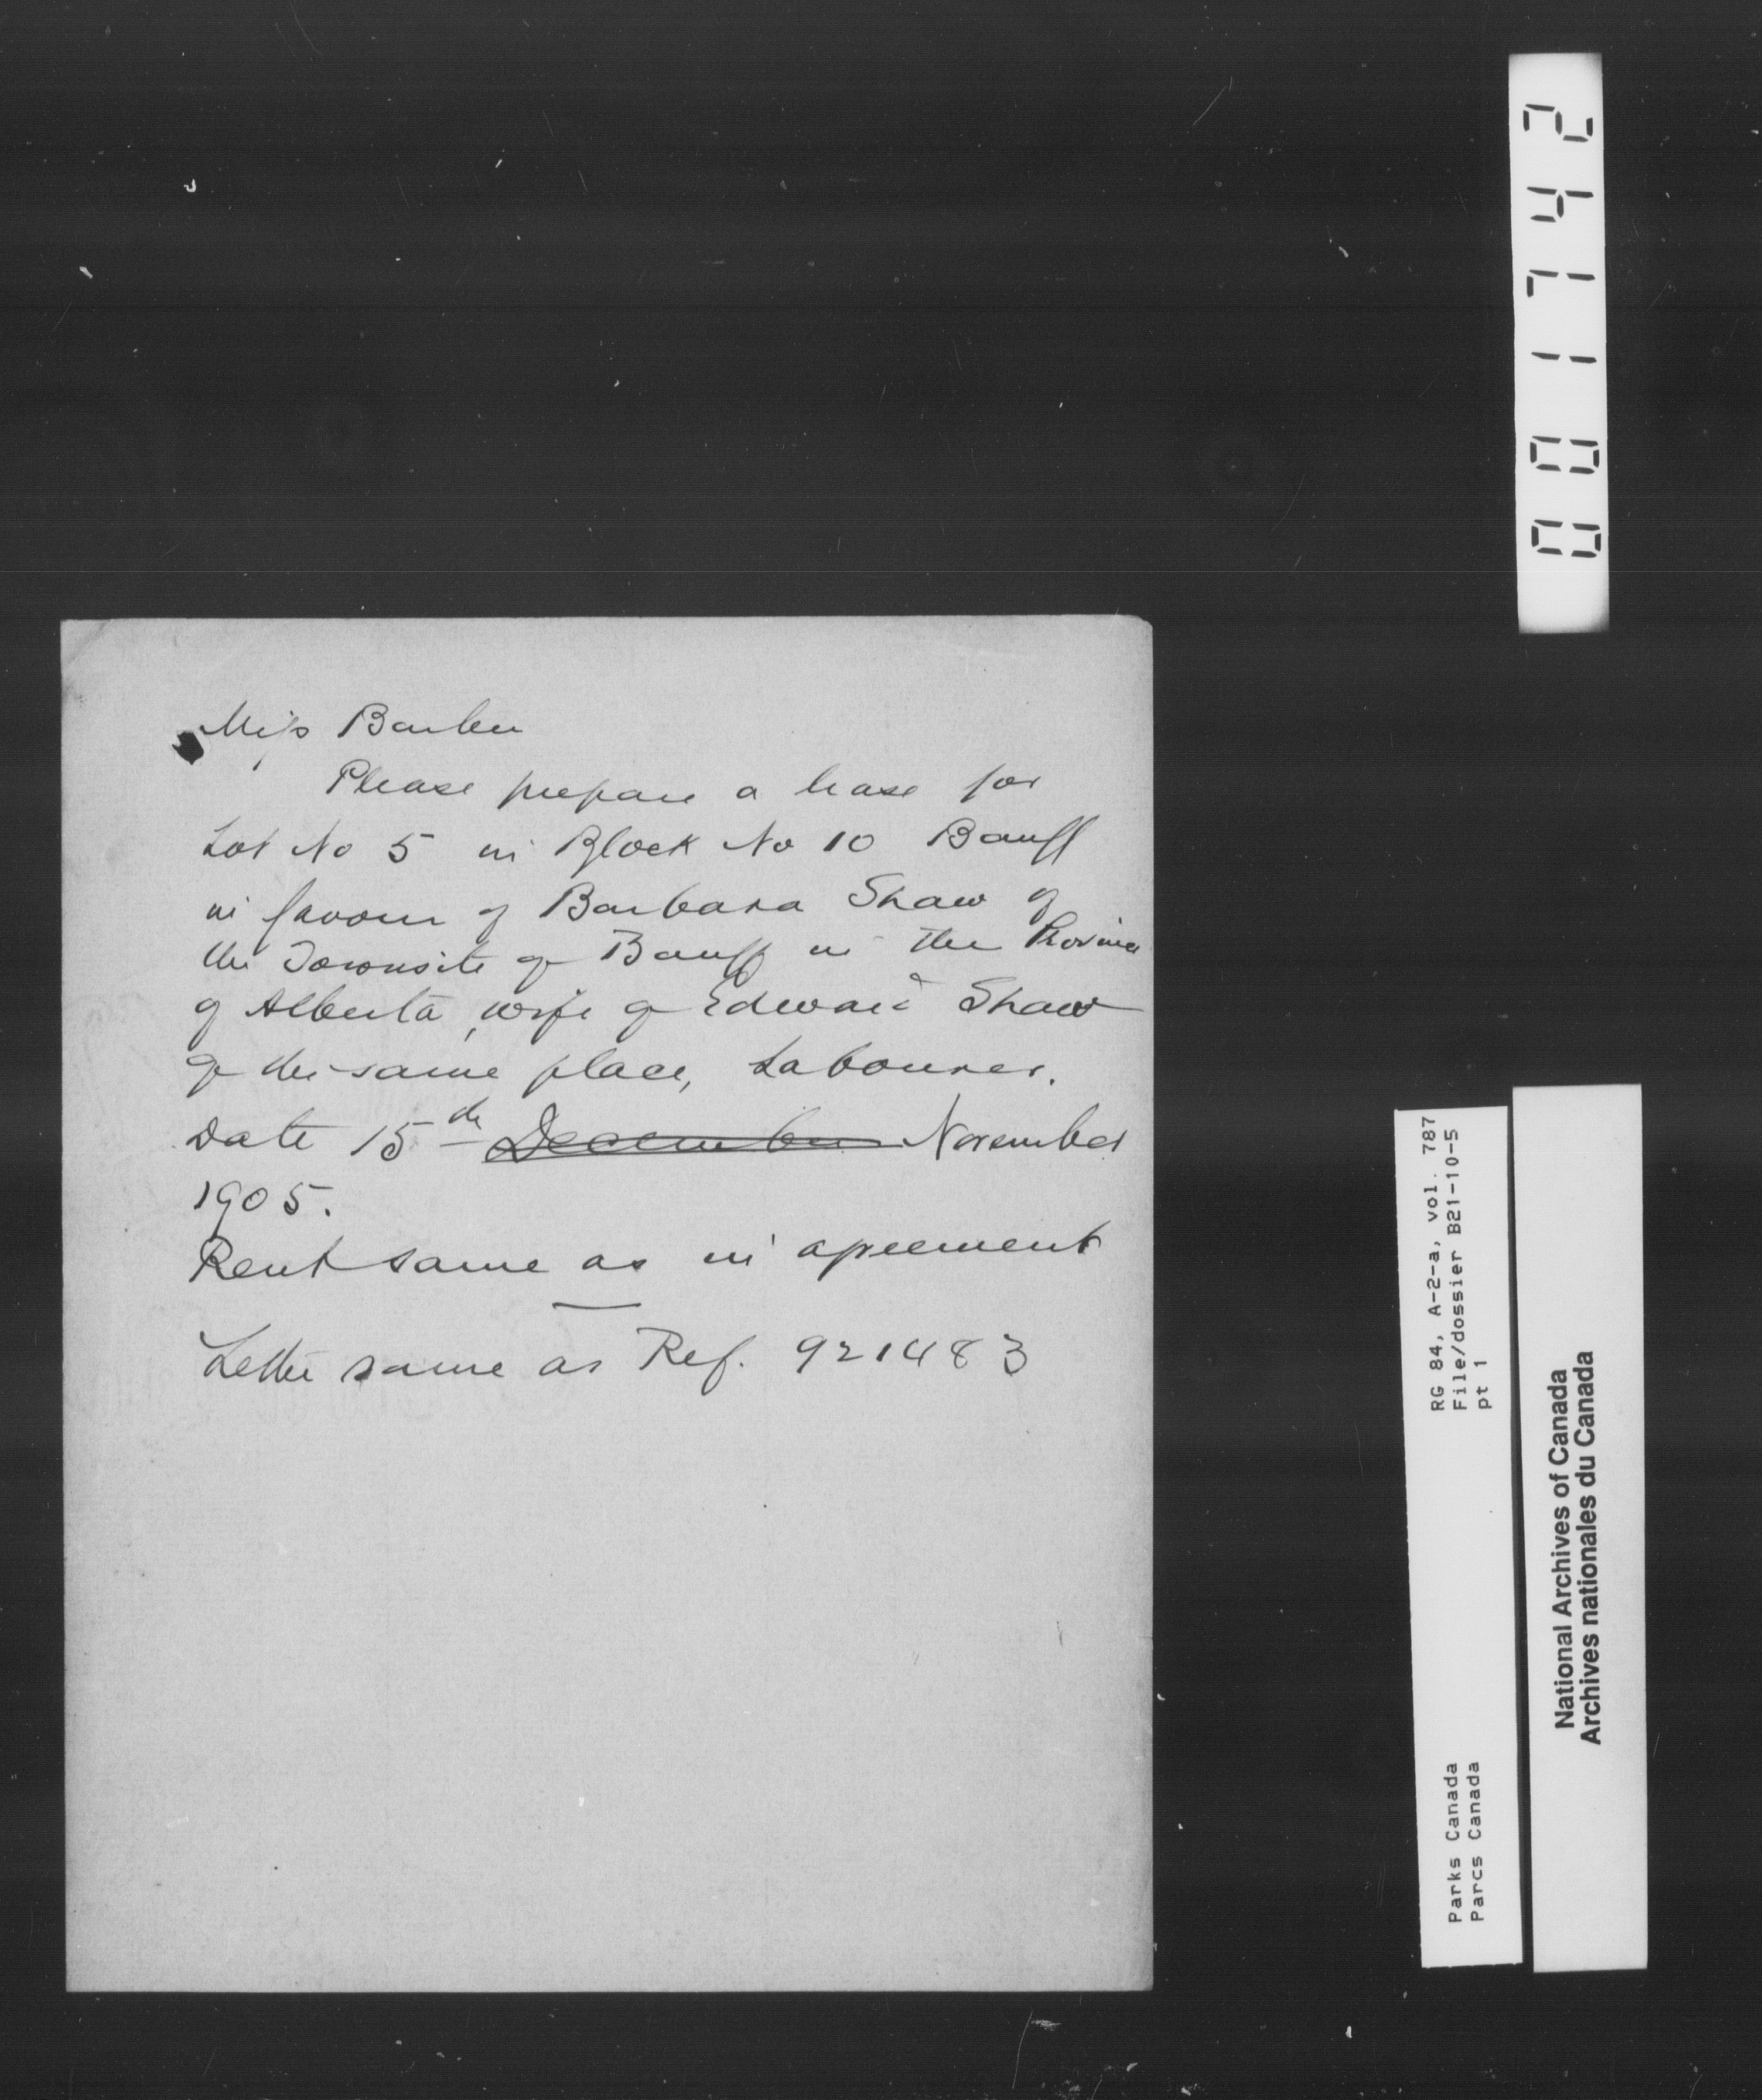 Miss Barber
Please prepare a lease for
Lot No 5 in Block No 10 Banff
in favour of Barbara Shaw of
the Townsite of Banff in the Province
of Alberta, wife of Edward Shaw
of the same place, Labourer.
Date 15th December November
1905.
Rent same as in agreement
Letter same as Ref. 921483
001742
RG 84, A-2-a, vol. 787
File/dossier B21-10-5
pt 1
Parks Canada
Parcs Canada
National Archives of Canada
Archives nationales du Canada